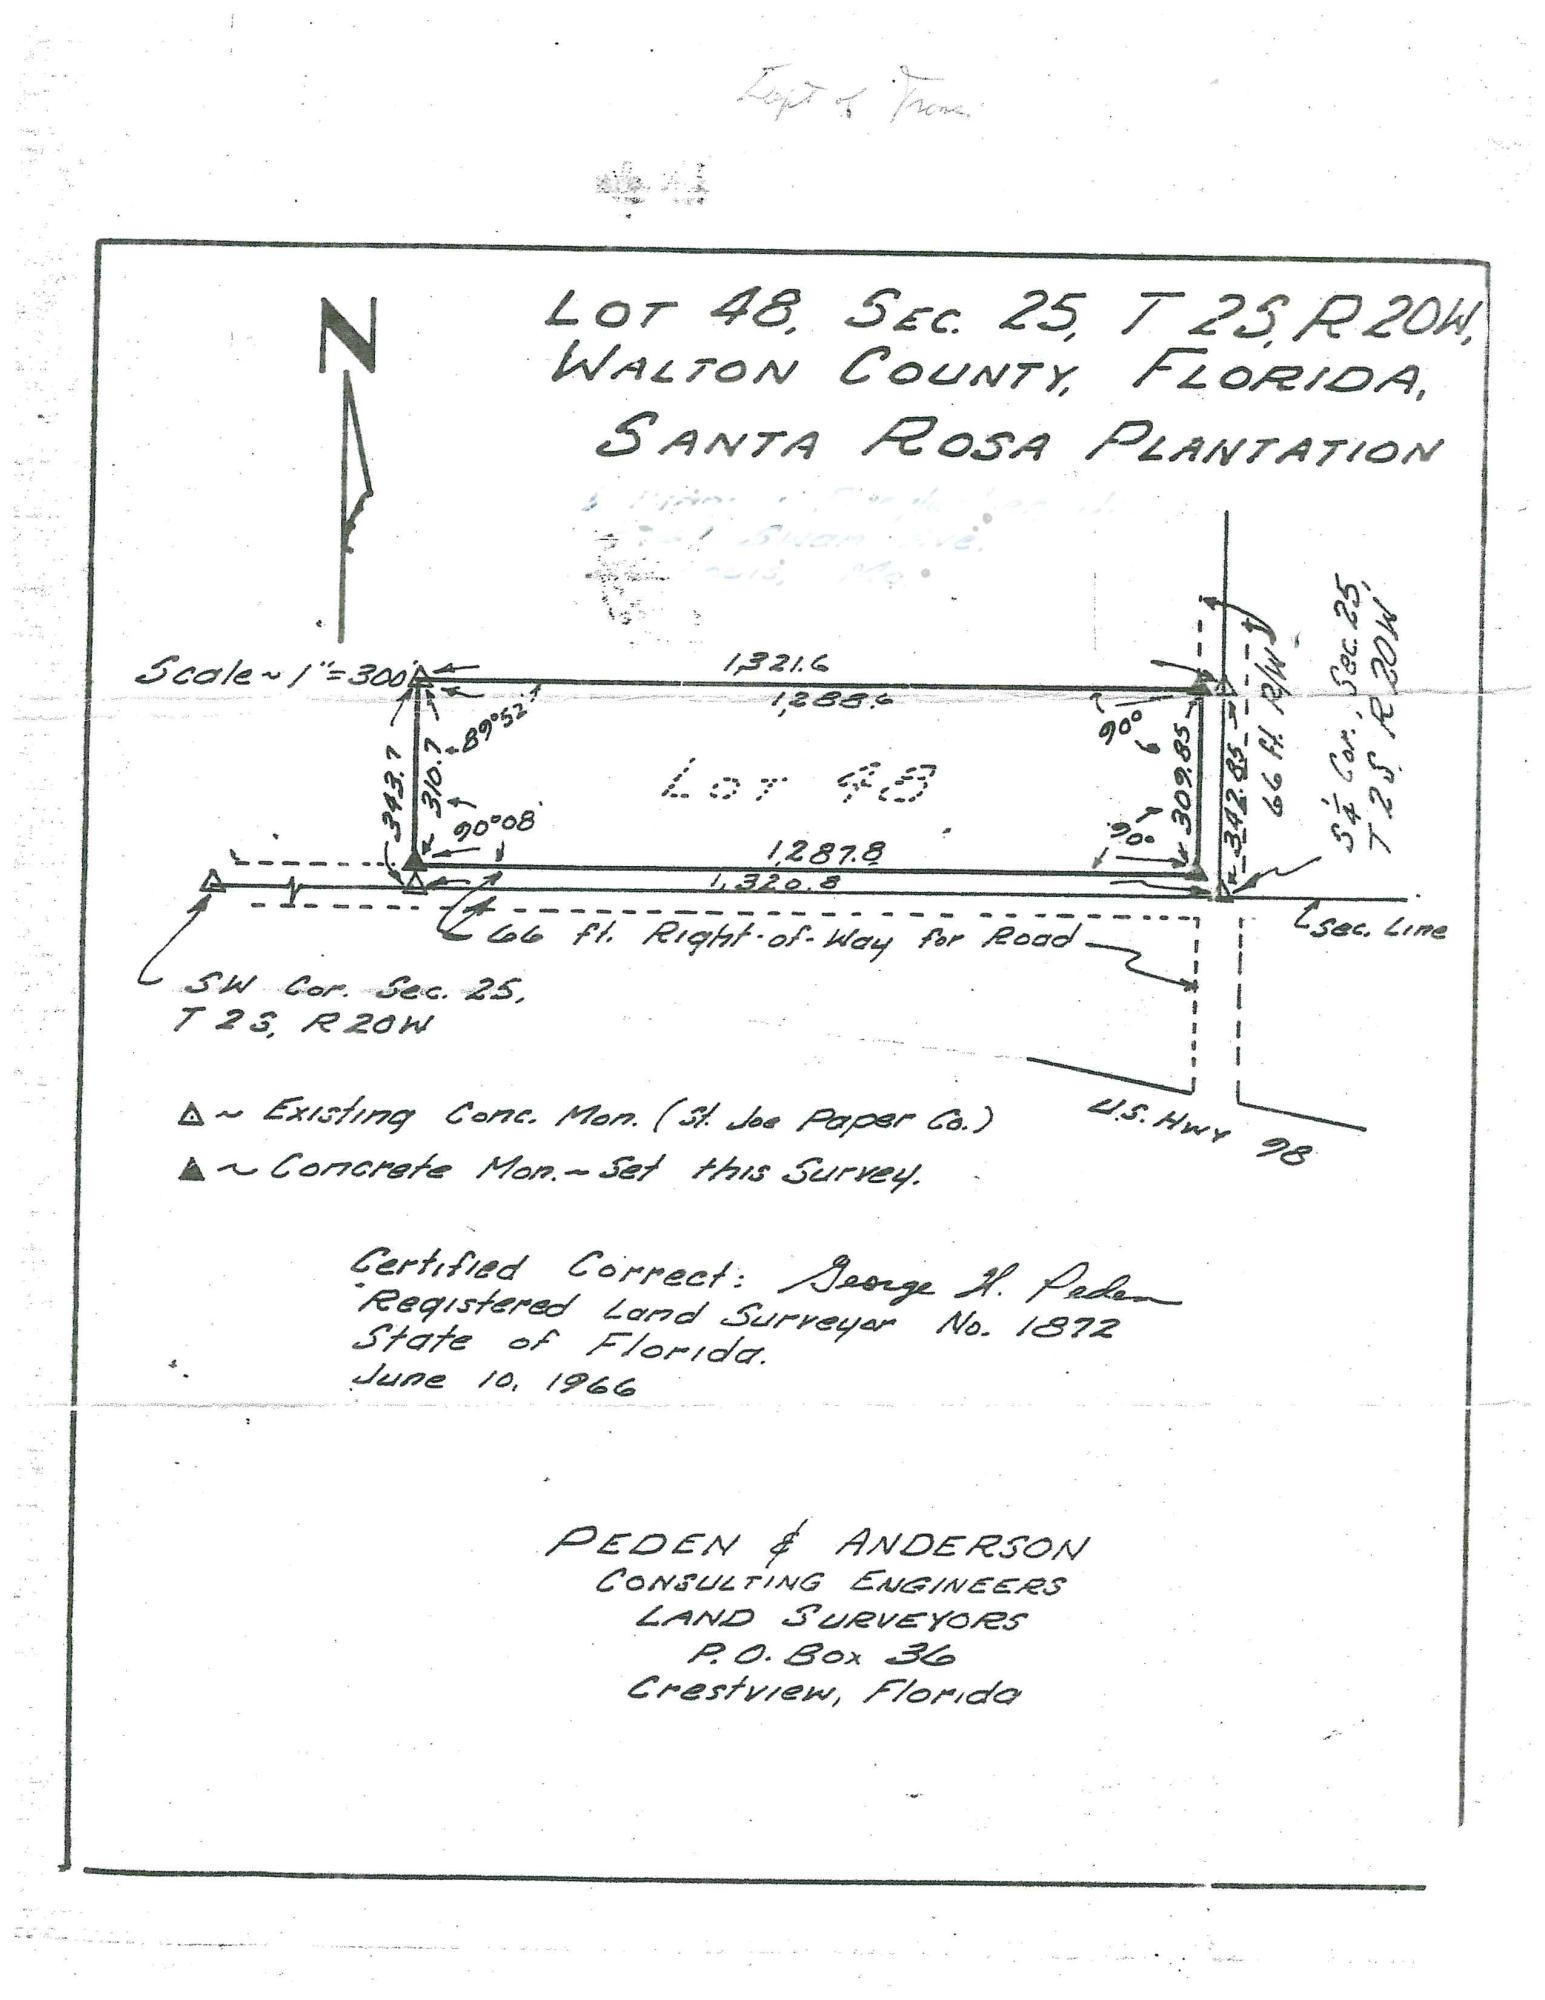 Dept of Trans.
LOT 48, SEC. 25, T 2S, R 20W,
WALTON COUNTY, FLORIDA,
SANTA ROSA PLANTATION
N
Swan Ave.
Scale ~ 1" = 300'
1,321.6
1,288.6
89°52'
90°
343.7
310.7
LOT 48
309.85
342.85
66 ft. R/W
S 1/4 Cor., Sec. 25,
T 2 S, R 20W
90°08'
90°
1,287.8
1,320.8
66 ft. Right-of-Way for Road
Sec. Line
SW Cor. Sec. 25,
T 2 S, R 20W
U.S. HWY 98
~ Existing Conc. Mon. (St. Joe Paper Co.)
~ Concrete Mon. ~ Set this Survey.
Certified Correct: George H. Peden
Registered Land Surveyor No. 1872
State of Florida.
June 10, 1966
PEDEN & ANDERSON
CONSULTING ENGINEERS
LAND SURVEYORS
P.O. Box 36
Crestview, Florida